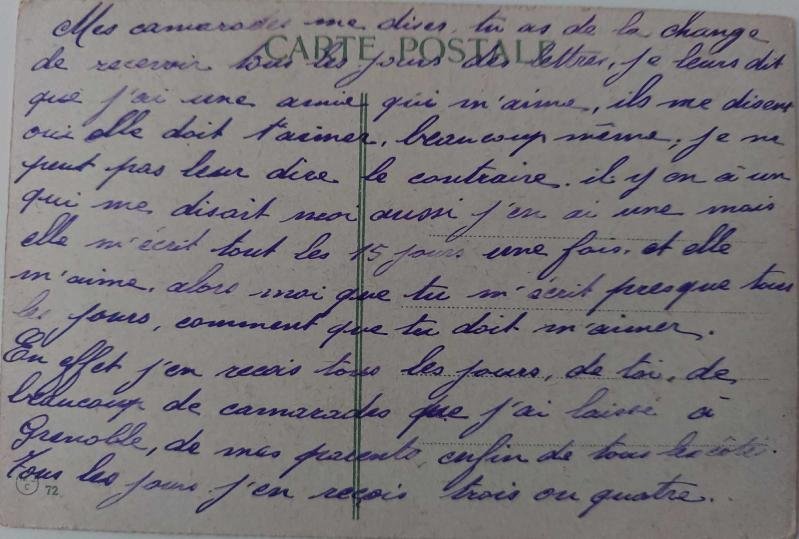 Mes camarades me dises, tu as de la change
CARTE POSTALE
de recevoir tous les jours des lettres, je leurs dit
que j'ai une amie qui m'aime, ils me disent
oui elle doit t'aimer, beaucoup même, je ne
peut pas leur dire le contraire. il y en à un
qui me disait moi aussi j'en ai une mais
elle m'écrit tout les 15 jours une fois. et elle
m'aime. alors moi que tu m'écrit presque tous
les jours, comment que tu doit m'aimer.
En effet j'en reçois tous les jours, de toi, de
beaucoup de camarades que j'ai laissé à
Grenoble, de mes parents, enfin de tous les côtés.
Tous les jours j'en reçois trois ou quatre..
C 72